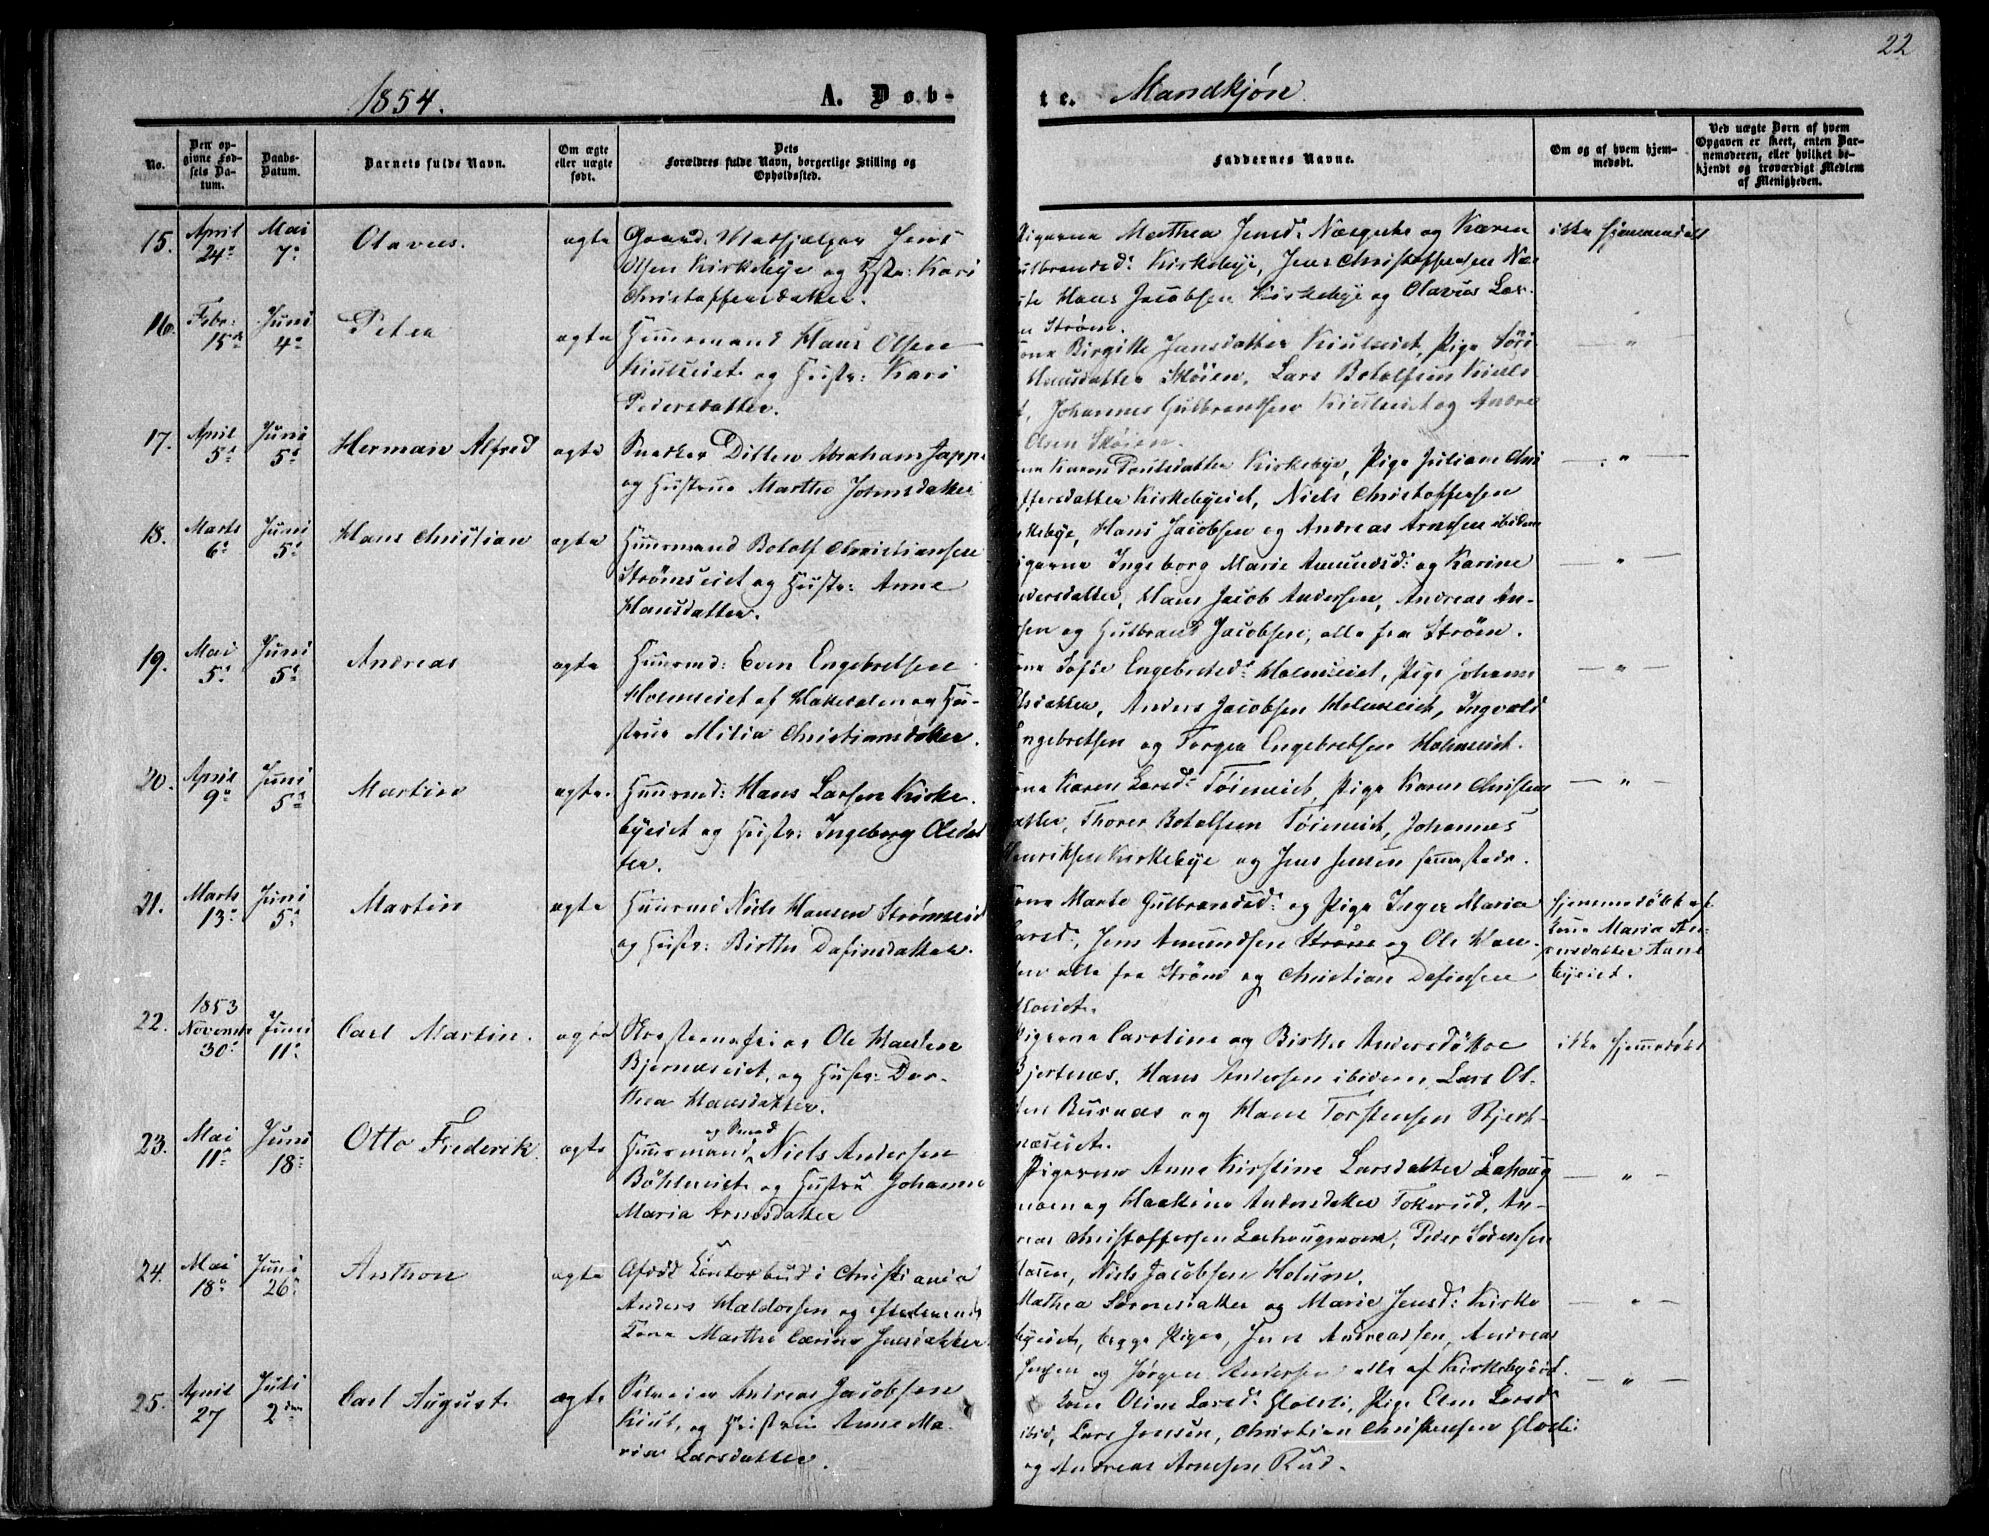 22
1854.
A. Døb-
te. Mandkjøn.
No.
Den opgivne Fødsels Datum.
Daabs-Datum.
Barnets fulde Navn.
Om ægte eller uægte født.
Dets Forældres fulde Navn, borgerlige Stilling og Opholdssted.
Faddernes Navne.
Om og af hvem hjemmedøbt.
Ved uægte Børn af hvem Opgaven er skeet, enten Barnemoderen, eller hvilket bekjendt og troværdigt Medlem af Menigheden.
15. April 24de Mai 7de Olavus. ægte Gaard. Jens
Olsen Kirkebye og Hstr: Kari
Christoffersdatter.
Pigerne Mathea Jensd: og Karen
Gulbrandsd: Kirkebye, Jens Christoffersen
Hans Jacobsen Kirkebye og Olavus Lar-
Strøm.
ikke hjemmedøbt
16. Febr: 15de Juni 4de Peter ægte Huusmand Hans Olsen
Kiulseiet og Hustr: Kari
Pedersdatter.
Kona Birgitte Jensdatter Kiulseiet, Pige
Hansdatter Skøien, Lars Botolfsen Kiuls
Johannes Gulbrandsen Kiulseiet og Andre
Olsen Skøien.
— " —
17. April 5te Juni 5te Herman Alfred ægte Snedker Ditlev Abraham Jappe
og Hustrue Marthe Johnsdatter
Kona Karen Poulsdatter Kirkebye, Pige Juliane Chri
stoffersdatter Kirkebyeiet, Niels Christoffersen
Kirkebye, Hans Jacobsen og Andreas Arnesen ibidem
— " —
18. Marts 6te Juni 5te Hans Christian ægte Huusmand Botolf Christiansen
Strømseiet og Hustr: Anne
Hansdatter.
Pigerne Ingeborg Marie Amundsd: og Karine
Andersdatter, Hans Jacob Andersen, Andreas An-
sen og Gulbrand Jacobsen, alle fra Strøm.
— " —
19. Mai 5te Juni 5te Andreas ægte Huusmd: Even Engebretsen
Holmseiet af Hakedalen og Hu-
strue Milia Christiansdatter.
Kona Sofie Engebretsd: Holmseiet, Pige Johanne
datter, Anders Jacobsen Holmseiet, Ingvald
Engebretsen og Torger Engebretsen Holmseiet.
— " —
20. April 9de Juni 5te Martin ægte. Huusmd: Hans Larsen Kirke-
byeiet og Hustr: Ingeborg Olsdat
ter.
Kona Karen Larsd: Tøieneiet, Pige Karen Christens
datter, Thorer Botolfsen Tøieneiet, Johannes
Henriksen Kirkebye og Jens Jensen sammesteds.
— " —
21. Marts 13de Juni 5te Martin ægte Huusmd Niels Hansen Strømseiet
og Hustr: Birthe Dafinsdatter.
Kona Marte Gulbrandsd: og Pige Inger Maria
Larsd, Jens Amundsen Strøm og Ole Han-
sen alle fra Strøm og Christian Dafinsen
eiet.
hjemmedøbt af
Kone Maria An-
dersdatter Aane
byeiet.
22. 1853 November 30te Juni 11te Carl Martin. ægte Ole Hansen
Bjernæseiet, og Hustr: Dor-
thea Hansdatter.
Pigerne Caroline og Birthe Andersdøttre
Bjertnæs, Hans Andersen ibidem, Lars Ol-
sen Burnæs og Hans Torstensen Bjert-
næseiet.
ikke hjemmedøbt
23. Mai 11te Juni 18de Otto Frederik. ægte Huusmand og Smed Niels Andersen
Bøhlereiet og Hustru Johanne
Maria Arnesdatter
Pigerne Anne Kirstine Larsdatter Lahaug
moen og Haakine Andersdatter Tokerud, An-
dreas Christoffersen Lerhaugmoen, Peder Sørensen
Niels Jacobsen Holum.
— " —
24. Mai 18de Juni 26de Anthon ægte Afdød Contorbud i Christiania
Anders Haldorsen og efterlevende
Kone Marthe Carine Jensdatter
Mathea Sørensdatter og Marie Jensd: Kirke
byeiet, begge Piger, Jens Andreassen, Andreas
Jensen og Jørgen Andersen alle af Kirkebyeiet.
— " —
25. April 27 Juli 2den Carl August. ægte Selveier Andreas Jacobsen
Kiul, og Hustrue Anne Ma-
ria Larsdatter.
Kone Oline Larsd: Glosli, Pige Elen Larsd
ibid, Lars Jensen, Christian Christensen Glosli
og Andreas Arnesen Rud.
— " —